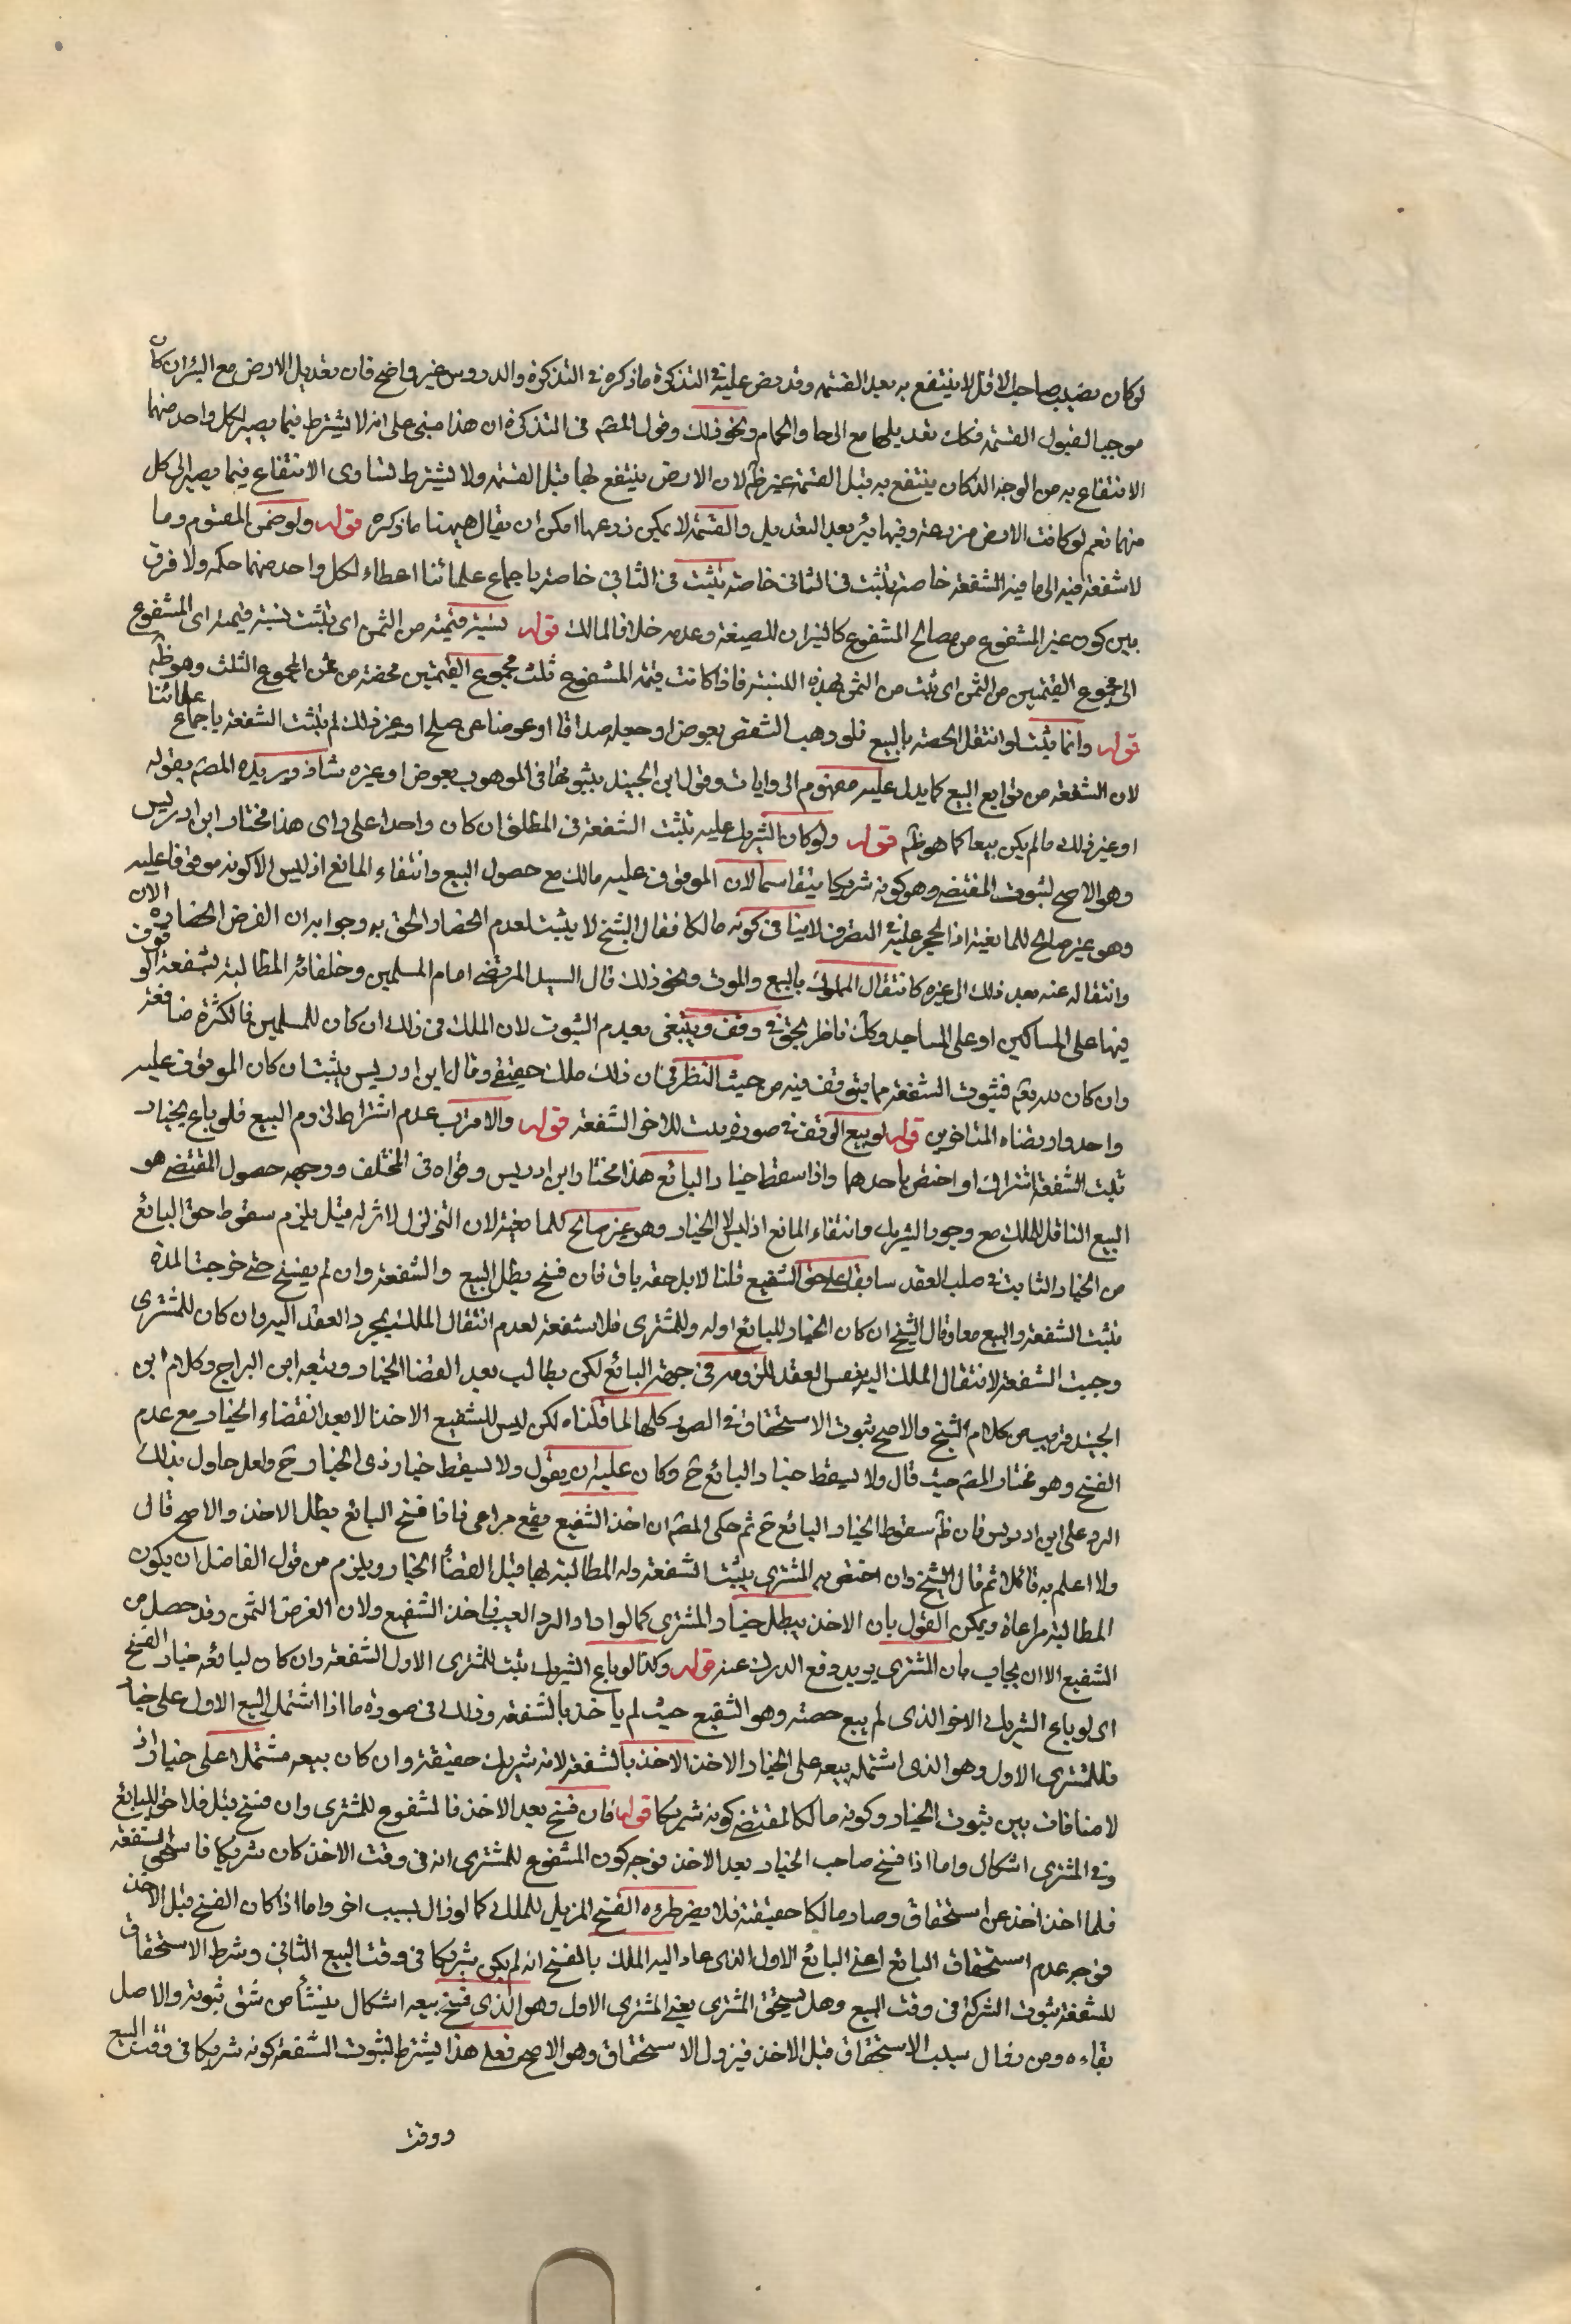 لو كان نصيب صاحب الاقل لا ينتفع به بعد القسمة وقد نص عليه في التذكرة ما ذكره في التذكرة والدروس غير واضح فان تعديل الارض مع البئر ان كان
موجبا لقبول القسمة فكك تعديلها مع الرحا والحمام ونحو ذلك وقول المصّ في التذكرة ان هذا مبني على انه لا يشترط فيما يصير لكل واحد منهما
الانتفاع به من الوجه الذكان ينتفع به قبل القسمة غير ظّ لان الارض ينتفع بها قبل القسمة ولا يشترط تساوى الانتفاع فيما يصير الى كل
منهما نعم لو كانت الارض مزروعة وفيها بئر بعد التعديل والقسمة لا يمكن زرعها امكن ان يقال هيهنا ما ذكره قوله ولو ضمن المقسوم وما
لا شفعة فيه الى ما فيه الشفعة خاصة تثبت في الثاني خاصة تثبت في الثاني خاصة باجماع علمائنا اعطاء لكل واحد منهما حكمه ولا فرق
بين كون غير المشفوع من مصالح المشفوع كالثيران للضيعة وعدمه خلافا لمالك قوله بنسبة قيمته من الثمن اى تثبت بنسبة قيمته اى المشفوع
الى مجموع القيمتين من الثمن اى ثبت من الثمن بهذه النسبة فاذا كانت قيمة المشفوع ثلث مجموع القيمتين فحصته من ثمن المجموع الثلث وهو ظّ
قوله وانما يثبت لو انتقل الحصة بالبيع فلو وهب الشقص بعوض او جعله صداقا او عوضا عن صلح او غير ذلك لم تثبت الشفعة باجماع علمائنا
لان الشفعة من توابع البيع كما يدل عليه مفهوم الروايات وقول ابن الجنيد بثبوتها في الموهوب بعوض او غيره شاذ ويريد المصّ بقوله
او غير ذلك ما لم يكن بيعا كما هو ظّ قوله ولو كان الشريك عليه تثبت الشفعة في المطلق ان كان واحدا على راى هذا مختار ابن ادريس
وهو الاصح لثبوت المقتضى وهو كونه شريكا متقاسما لان الموقوف عليه مالك مع حصول البيع وانتفاء المانع اذ ليس الا كونه موقوفا عليه
وهو غير صالح للمانعية اذ الحجر عليه في التصرف لا ينافى كونه مالكا فقال الشيخ لا يثبت لعدم انحصار الحق به وجوابه ان الفرض انحصاره الان
وانتقاله عنه بعد ذلك الى غيره كانتقال المملوك بالبيع والموت ونحو ذلك قال السيد المرتضى امام المسلمين وخلفائه المطالبة بشفعة الوقوف
فيها على المساكين او على المساجد وكك ناظر بحق في وقف وينبغى بعدم الثبوت لان الملك في ذلك ان كان للمسلمين فالكثرة مانعة
وان كان لله تعّم فثبوت الشفعة مما يتوقف فيه من حيث النظر في ان ذلك ملك حقيقى وقال ابن ادريس يثبت ان كان الموقوف عليه
واحد وارتضاه المتاخرين قوله لو بيع الوقف في صورة يثبت للاخر الشفعة قوله والاقرب عدم اشتراط لزوم البيع فلو باع بخيار
ثبت الشفعة اشترك او اختص باحدهما واذا اسقط خيار البائع هذا مختار ابن ادريس وقواه في المختلف ووجهه حصول المقتضى هو
البيع الناقل للملك مع وجود الشريك وانتفاء المانع اذ ليس الا الخيار وهو غير صالح للمانعية لان التزلزل لا اثر له قيل يلزم سقوط حق البائع
من الخيار الثابت في صلب العقد سابقا على حق الشفيع قلنا لا بل حقه باق فان فسخ بطل البيع والشفعة وان لم يفسخ حتى خرجت المدة
تثبت الشفعة والبيع معا وقال الشيخ ان كان الخيار للبائع او له وللمشترى فلا شفعة لعدم انتقال الملك بمجرد العقد اليه وان كان للمشترى
وجبت الشفعة لانتقال الملك اليه بنفس العقد للزومه في جهة البائع لكن يطالب بعد انقضا الخيار وتبعه ابن البراج وكلام ابن
الجنيد قريب من كلام الشيخ والاصح ثبوت الاستحقاق في الصور كلها لما قلناه لكن ليس للشفيع الاخذ الا بعد انقضاء الخيار مع عدم
الفسخ وهو مختار المصّ حيث قال ولا يسقط خيار البائع حّ وكان عليه ان يقول ولا يسقط خيار ذى الخيار حّ ولعله حاول بذلك
الرد على ابن ادريس فان ظّ سقوط الخيار البائع حّ ثم حكى المصّ ان اخذ الشفيع يقع مراعى فاذا فسخ البائع بطل الاخذ والاصح قال
ولا اعلم به قائلا ثم قال الشيخ وان اختص به المشترى يثبت الشفعة وله المطالبة بها قبل انقضاء الخيار ويلزم من قول الفاضل ان يكون
المطالبة مراعاة ويمكن القول بان الاخذ يبطل خيار المشترى كما لو اراد الرد العيب فاخذ الشفيع ولان الغرض الثمن وقد حصل من
الشفيع الا ان يجاب بان المشترى يريد دفع الدرك عنه قوله وكذا لو باع الشريك تثبت للمشترى الاول الشفعة وان كان لبائعه خيار الفسخ
اى لو باع الشريك الاخر الذى لم يبع حصته وهو الشفيع حيث لم ياخذ بالشفعة وذلك في صورة ما اذا اشتمل البيع الاول على خيار
فللمشترى الاول وهو الذى اشتمل بيعه على الخيار الاخذ الاخذ بالشفعة لانه شريك حقيقة وان كان بيعه مشتملا على خيار اذ
لا منافات بين ثبوت الخيار وكونه مالكا لمقتضى كونه شريكا قوله فان فسخ بعد الاخذ فالمشفوع للمشترى وان فسخ قبل فلا حق للبائع
وفى المشترى اشكال واما اذا فسخ صاحب الخيار بعد الاخذ فوجه كون المشفوع للمشترى انه في وقت الاخذ كان شريكا فاستحق الشفعة
فلما اخذ اخذ عن استحقاق وصار مالكا حقيقة فلا يضر طروه الفسخ المزيل للملك كما لو زال بسبب اخر واما اذا كان الفسخ قبل الاخذ
فوجه عدم استحقاق البائع اعنى البائع الاول الذى عاد اليه الملك بالفسخ انه لم يكن شريكا في وقت البيع الثاني وشرط الاستحقاق
للشفعة ثبوت الشركة في وقت البيع وهل يستحق المشترى يعنى المشترى الاول وهو الذى فسخ بيعه اشكال ينشأ من سبق ثبوته والاصل
بقاءه ومن زوال سبب الاستحقاق قبل الاخذ فيزول الاستحقاق وهو الاصح فعلى هذا يشترط لثبوت الشفعة كونه شريكا في وقت البيع
ووقت